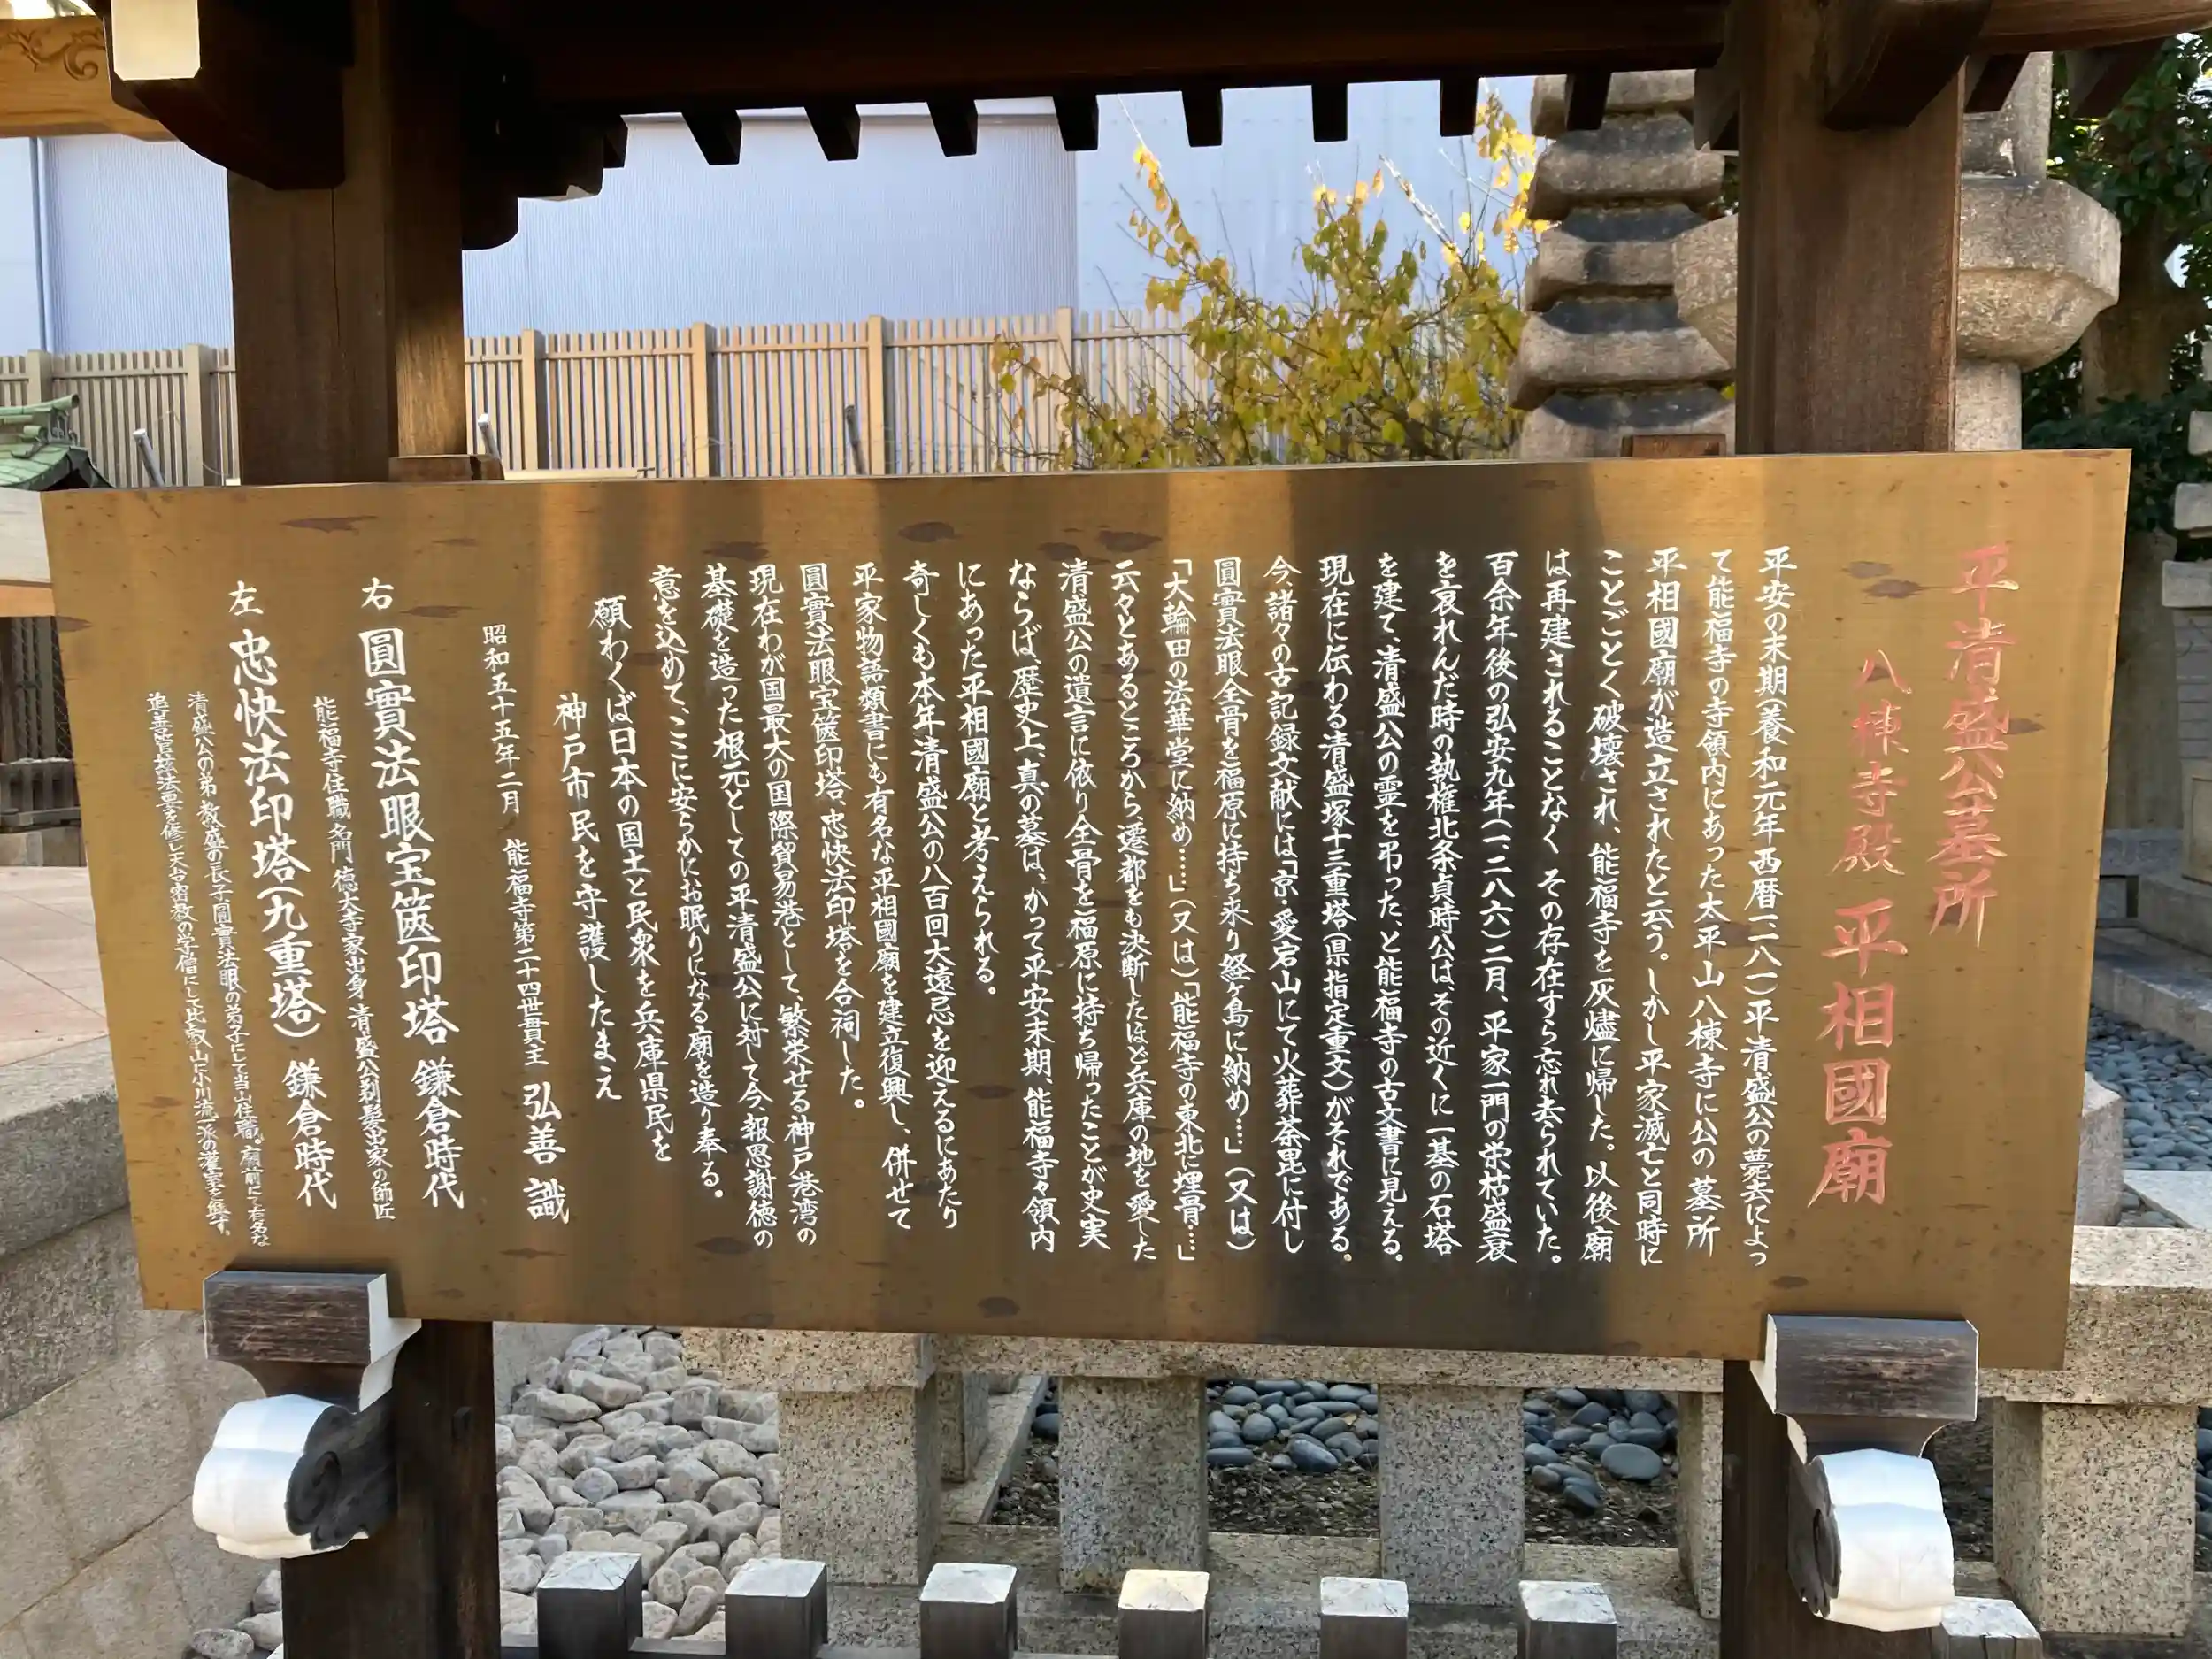 平清盛公墓所
八棟寺殿 平相國廟
平安の末期(養和元年西暦一一八一)平清盛公の薨去によっ
て能福寺の寺領内にあった太平山八棟寺に公の墓所
平相國廟が造立されたと云う。しかし平家滅亡と同時に
ことごとく破壊され、能福寺を灰燼に帰した。以後廟
は再建されることなく その存在すら忘れ去られていた。
百余年後の弘安九年(一二八六)二月、平家一門の栄枯盛衰
を哀れんだ時の執権北条貞時公は、その近くに一基の石塔
を建て、清盛公の霊を弔った、と能福寺の古文書に見える。
現在に伝わる清盛塚十三重塔(県指定重文)がそれである。
今、諸々の古記録文献には「京・愛宕山にて火葬荼毘に付し
圓實法眼全骨を福原に持ち来り経ヶ島に納め…」(又は)
「大輪田の法華堂に納め……」(又は)「能福寺の東北に埋骨…」
云々とあるところから、遷都をも決断したほど兵庫の地を愛した
清盛公の遺言に依り全骨を福原に持ち帰ったことが史実
ならば、歴史上、真の墓は、かって平安末期、能福寺々領内
にあった平相國廟と考えられる。
奇しくも本年清盛公の八百回大遠忌を迎えるにあたり
平家物語類書にも有名な平相國廟を建立復興し、併せて
圓實法眼宝篋印塔、忠快法印塔を合祠した。
現在わが国最大の国際貿易港として、繁栄せる神戸港湾の
基礎を造った根元としての平清盛公に対して今、報恩謝徳の
意を込めて、ここに安らかにお眠りになる廟を造り奉る。
願わくば日本の国土と民衆を兵庫県民を
神戸市民を守護したまえ
昭和五十五年二月 能福寺第二十四世貫主 弘善 識
右 圓實法眼宝篋印塔 鎌倉時代
能福寺住職 名門 徳大寺家出身 清盛公剃髪出家の師匠
左 忠快法印塔(九重塔) 鎌倉時代
清盛公の弟 教盛の長子圓實法眼の弟子にて当山住職。廟前にて有名な
追善管絃法要を修し天台密教の学僧にして比叡山に小川流一派の灌室を興す。